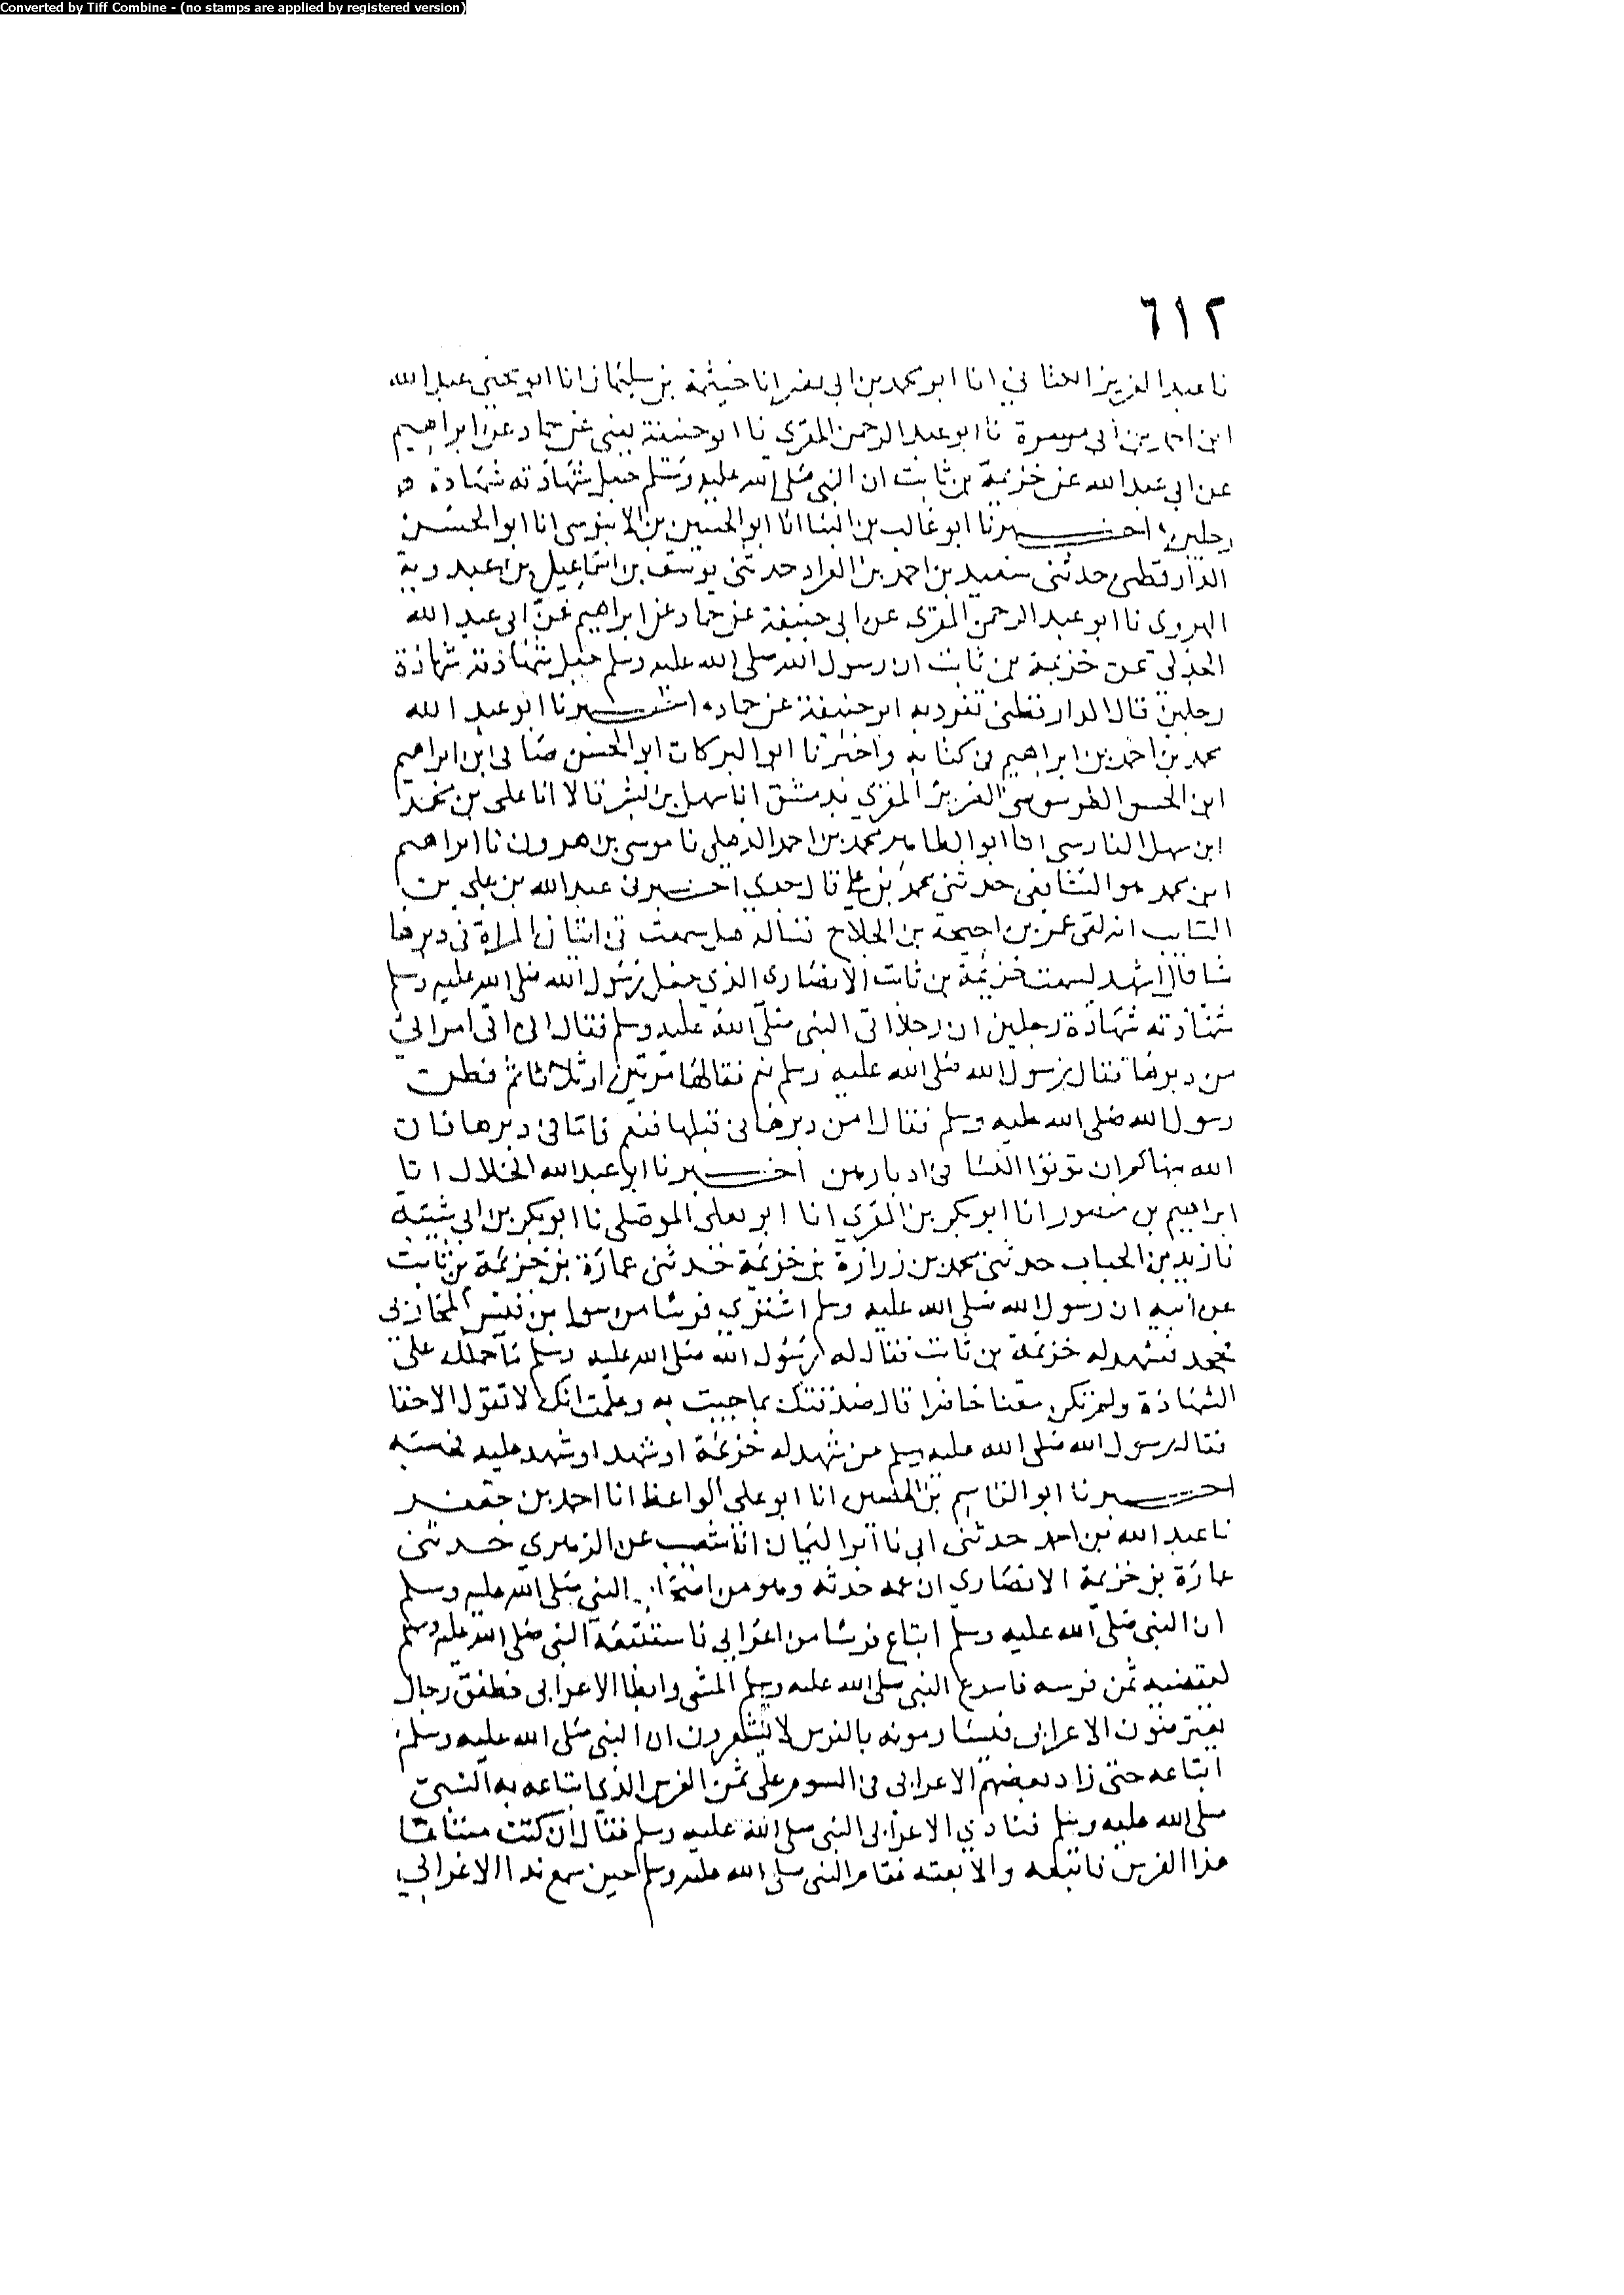 Converted by Tiff Combine - (no stamps are applied by registered version)
٦١٢
نا عبد العزيز الكتاني انا ابو محمد بن ابي نصر انا خيثمة بن سليمان انا ابو يحيى عبد الله
ابن احمد بن ابي ميسرة نا ابو عبد الرحمن المقري نا ابو حنيفة يعني عن حماد عن ابراهيم
عن ابي عبد الله عن خزيمة بن ثابت ان النبي صلى الله عليه وسلم جعل شهادته شهادة
رجلين اخبرنا ابو غالب بن البنا انا ابو الحسين بن الابنوسي انا ابو الحسن
الدارقطني حدثني سعيد بن احمد بن العراد حدثني يوسف بن اسماعيل بن عبدوية
الهروي نا ابو عبد الرحمن المقري عن ابي حنيفة عن حماد عن ابراهيم عن ابي عبد الله
الجدلي عن خزيمة بن ثابت ان رسول الله صلى الله عليه وسلم جعل شهادته شهادة
رجلين قال الدارقطني تفرد به ابو حنيفة عن حماد اخبرنا ابو عبد الله
محمد بن احمد بن ابراهيم في كتابه واخبرنا ابو البركات ابو الحسن بن ابراهيم
ابن الطرسوسي المقري بدمشق انا سهل بن بشر قالا انا علي بن محمد
ابن سهل الفارسي انا ابو الطاهر محمد بن احمد الذهلي نا موسى بن هرون نا ابراهيم
ابن محمد هو الشافعي حدثني محمد بن علي قال جدي اخبرني عبد الله بن علي بن
السايب انه لقي عمر بن احيحة بن الجلاح فساله هل سمعت في اتيان المراة في دبرها
شيا قال اشهد لسمعت خزيمة بن ثابت الانصاري الذي جعل رسول الله صلى الله عليه وسلم
شهادته شهادة رجلين ان رجلا اتى النبي صلى الله عليه وسلم فقال اني اتي امراتي
من دبرها فقال رسول الله صلى الله عليه وسلم نعم فقالها مرتين او ثلاثا ثم فطن
رسول الله صلى الله عليه وسلم فقال امن دبرها في قبلها فنعم فاما في دبرها فان
الله ينهاكم ان توتوا النسا في ادبارهن اخبرنا ابو عبد الله الخلال انا
ابراهيم بن منصور انا ابو بكر بن المقري انا ابو يعلى الموصلي نا ابو بكر بن ابي شيبة
نا زيد بن الحباب حدثني محمد بن زرارة بن خزيمة حدثني عمارة بن خزيمة بن ثابت
عن ابيه ان رسول الله صلى الله عليه وسلم اشترى فرسا من سوا بن قيس المحاربي
فجحد فشهد له خزيمة بن ثابت فقال له رسول الله صلى الله عليه وسلم ما حملك على
الشهادة ولم تكن معنا حاضرا قال صدقتك بما جيت به وعلمت انك لا تقول الا حقا
فقال رسول الله صلى الله عليه وسلم من شهد له خزيمة او شهد عليه فحسبه
اخبرنا ابو القاسم بن الحصين انا ابو علي الواعظ انا احمد بن جعفر
نا عبد الله بن احمد حدثني ابي نا ابو اليمان انا شعيب عن الزهري حدثني
عمارة بن خزيمة الانصاري ان عمه حدثه وهو من اصحاب النبي صلى الله عليه وسلم
ان النبي صلى الله عليه وسلم ابتاع فرسا من اعرابي فاستتبعه النبي صلى الله عليه وسلم
ليقضيه ثمن فرسه فاسرع النبي صلى الله عليه وسلم المشي وابطا الاعرابي فطفق رجال
يعترضون الاعرابي فيساومونه بالفرس لا يشعرون ان النبي صلى الله عليه وسلم
ابتاعه حتى زاد بعضهم الاعرابي في السوم على ثمن الفرس الذي ابتاعه به النبي
صلى الله عليه وسلم فنادى الاعرابي النبي صلى الله عليه وسلم فقال ان كنت مبتاعا
هذا الفرس فابتعه والا بعته فقام النبي صلى الله عليه وسلم حين سمع ندا الاعرابي